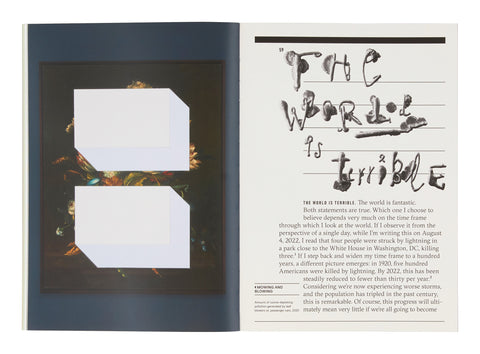 THE
WORLD
is
terrible
THE WORLD IS TERRIBLE. The world is fantastic.
Both statements are true. Which one I choose to
believe depends very much on the time frame
through which I look at the world. If I observe it from the
perspective of a single day, while I'm writing this on August
4, 2022, I read that four people were struck by lightning in
a park close to the White House in Washington, DC, killing
three. If I step back and widen my time frame to a hundred
years, a different picture emerges: in 1920, five hundred
Americans were killed by lightning. By 2022, this has been
steadily reduced to fewer than thirty per year.
Considering we're now experiencing worse storms,
and the population has tripled in the past century,
this is remarkable. Of course, this progress will ulti-
mately mean very little if we're all going to become
MOWING AND
BLOWING
Amount of ozone-depleting
pollution generated by leaf
blowers vs. passenger cars, 2020